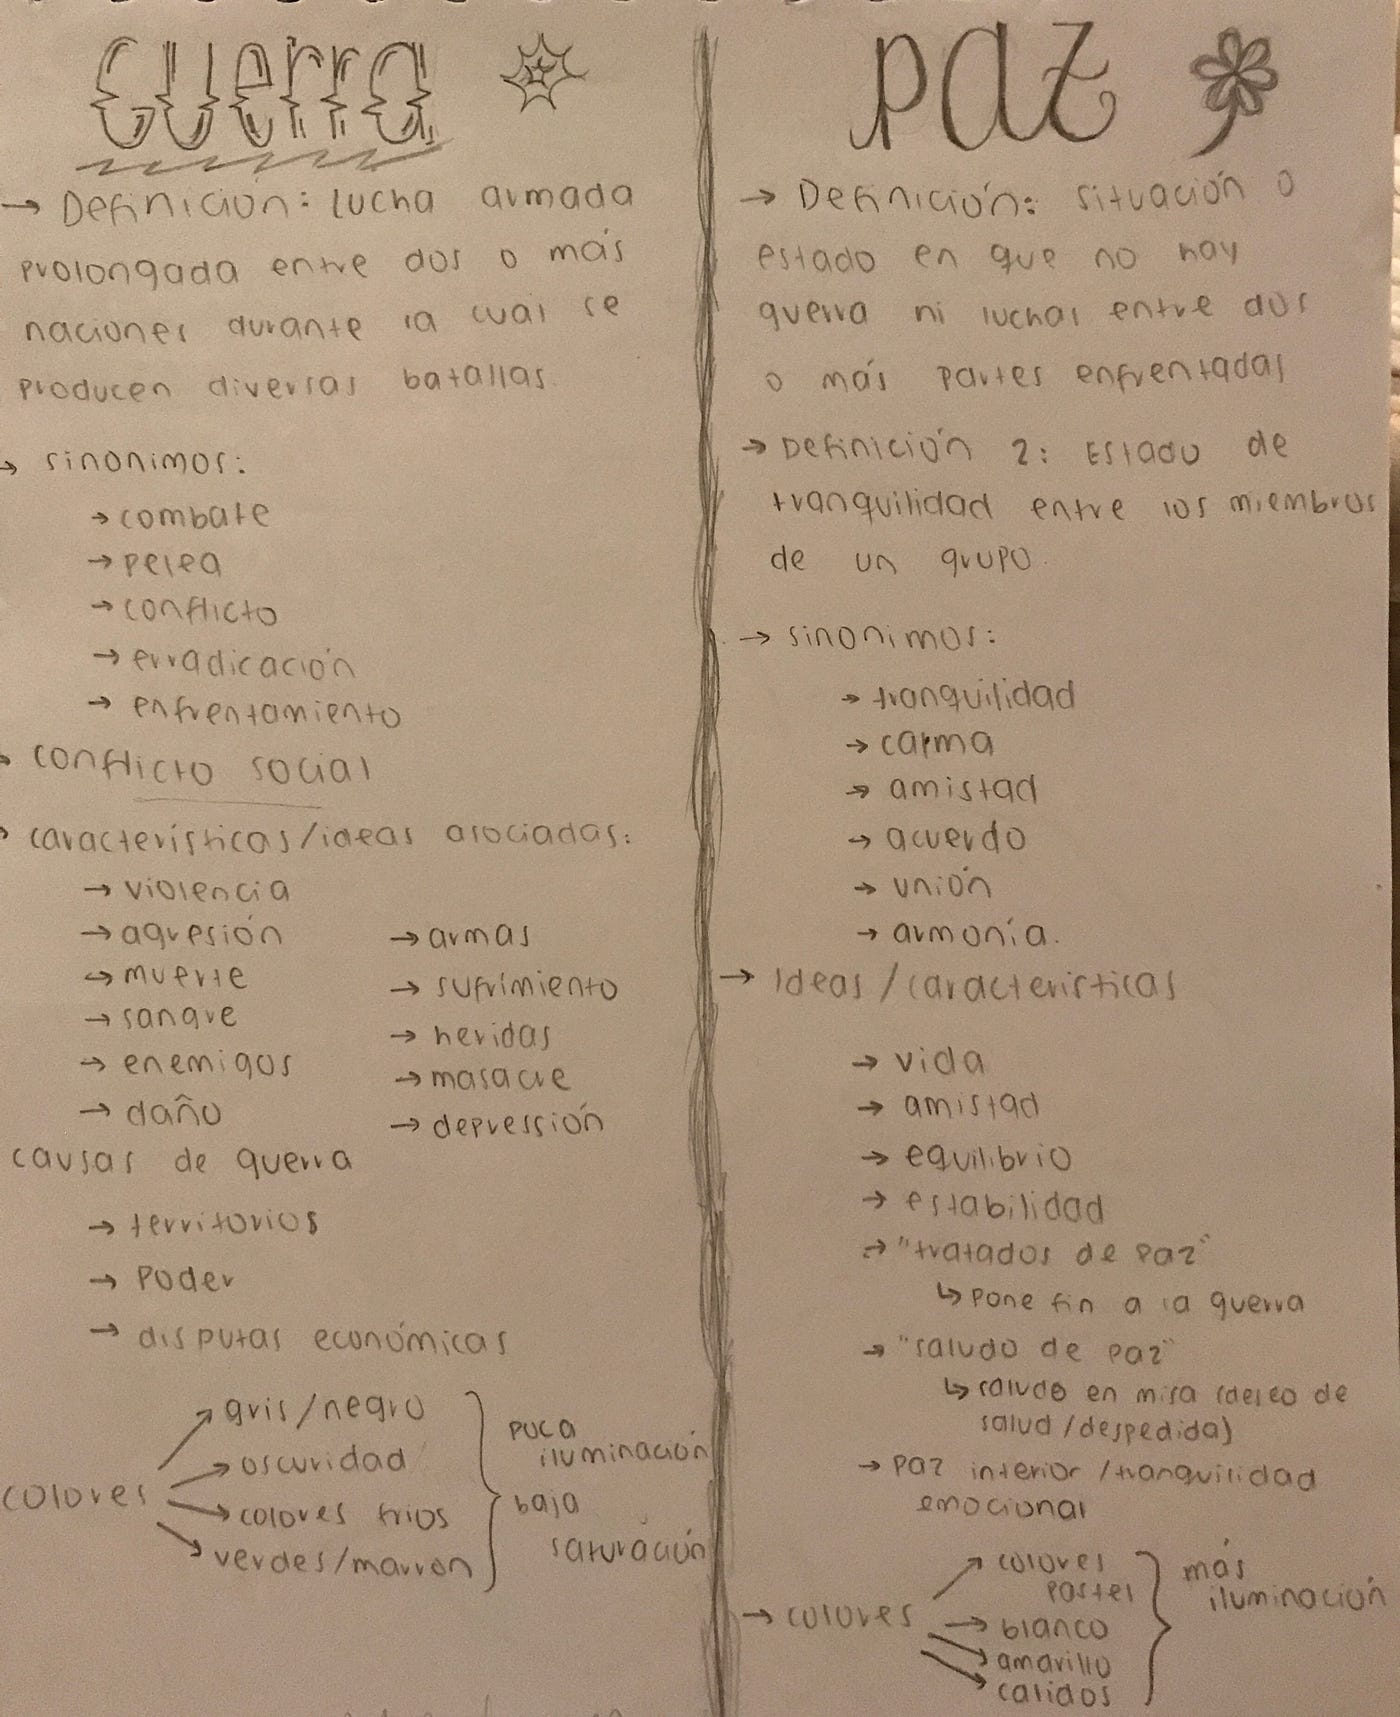 Guerra
→ Definición: lucha armada
prolongada entre dos o más
naciones durante la cual se
producen diversas batallas.
→ sinonimos:
→ combate
→ pelea
→ conflicto
→ erradicación
→ enfrentamiento
→ conflicto social
→ características/ideas asociadas:
→ violencia
→ agresión
→ muerte
→ sangre
→ enemigos
→ daño
→ armas
→ sufrimiento
→ heridas
→ masacre
→ depresión
causas de guerra
→ territorios
→ poder
→ disputas económicas
colores
→ gris/negro
→ oscuridad
→ colores frios
→ verdes/marron
poca
iluminación
baja
saturación
paz
→ Definición: situación o
estado en que no hay
guerra ni luchas entre dos
o más partes enfrentadas
→ Definición 2: Estado de
tranquilidad entre los miembros
de un grupo.
→ sinonimos:
→ tranquilidad
→ calma
→ amistad
→ acuerdo
→ unión
→ armonía.
→ Ideas/caracteristicas
→ vida
→ amistad
→ equilibrio
→ estabilidad
→ "tratados de paz"
↳ pone fin a la guerra
→ "saludo de paz"
↳ saludo en misa (deseo de
salud/despedida)
→ paz interior/tranquilidad
emocional
→ colores
→ colores
pastel
→ blanco
→ amarillo
→ calidos
más
iluminación